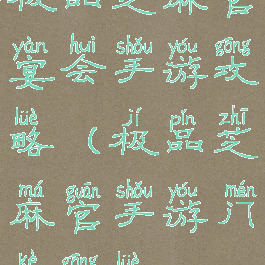 极品芝麻官
yàn huì shǒu yóu gōng
宴会手游攻
lüè jí pǐn zhī
略(极品芝
má guān shǒu yóu mén
麻官手游门
kè gōng lüè